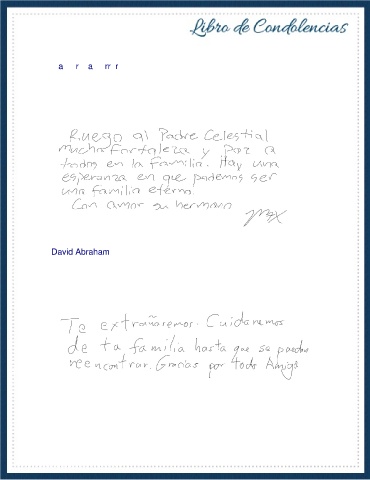 Libro de Condolencias
a r a rr r
Ruego al Padre Celestial
mucha fortaleza y paz a
todos en la familia. Hay una
esperanza en que podemos ser
una familia eterna
Con amor su hermano
Max
David Abraham
Te extrañaremos. Cuidaremos
de ta familia hasta que se puedan
reencontrar. Gracias por todo Amigo